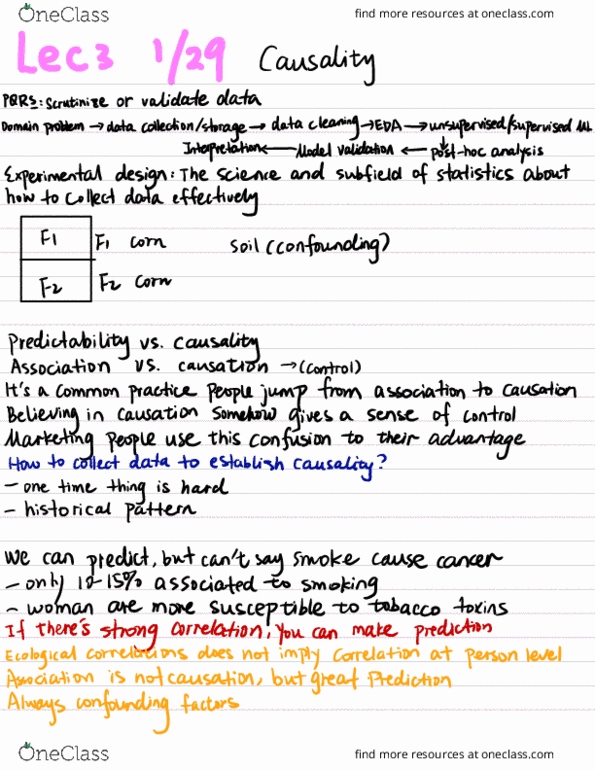 OneClass
find more resources at oneclass.com
Lec3 1/29 Causality
PQRS: Scrutinize or validate data
Domain problem → data collection/storage → data cleaning → EDA → unsupervised/supervised ML
Interpretation ← Model validation ← post-hoc analysis
Experimental design: The science and subfield of statistics about
how to collect data effectively
F1 F1 corn soil (confounding)
F2 F2 corn
Predictability vs. causality
Association vs. causation → (control)
It's a common practice people jump from association to causation
Believing in causation somehow gives a sense of control
Marketing people use this confusion to their advantage
How to collect data to establish causality?
- one time thing is hard
- historical pattern
We can predict, but can't say smoke cause cancer
- only 10-15% associated to smoking
- woman are more susceptible to tobacco toxins
If there's strong correlation, you can make prediction
Ecological correlations does not imply correlation at person level
Association is not causation, but great Prediction
Always confounding factors
OneClass
find more resources at oneclass.com